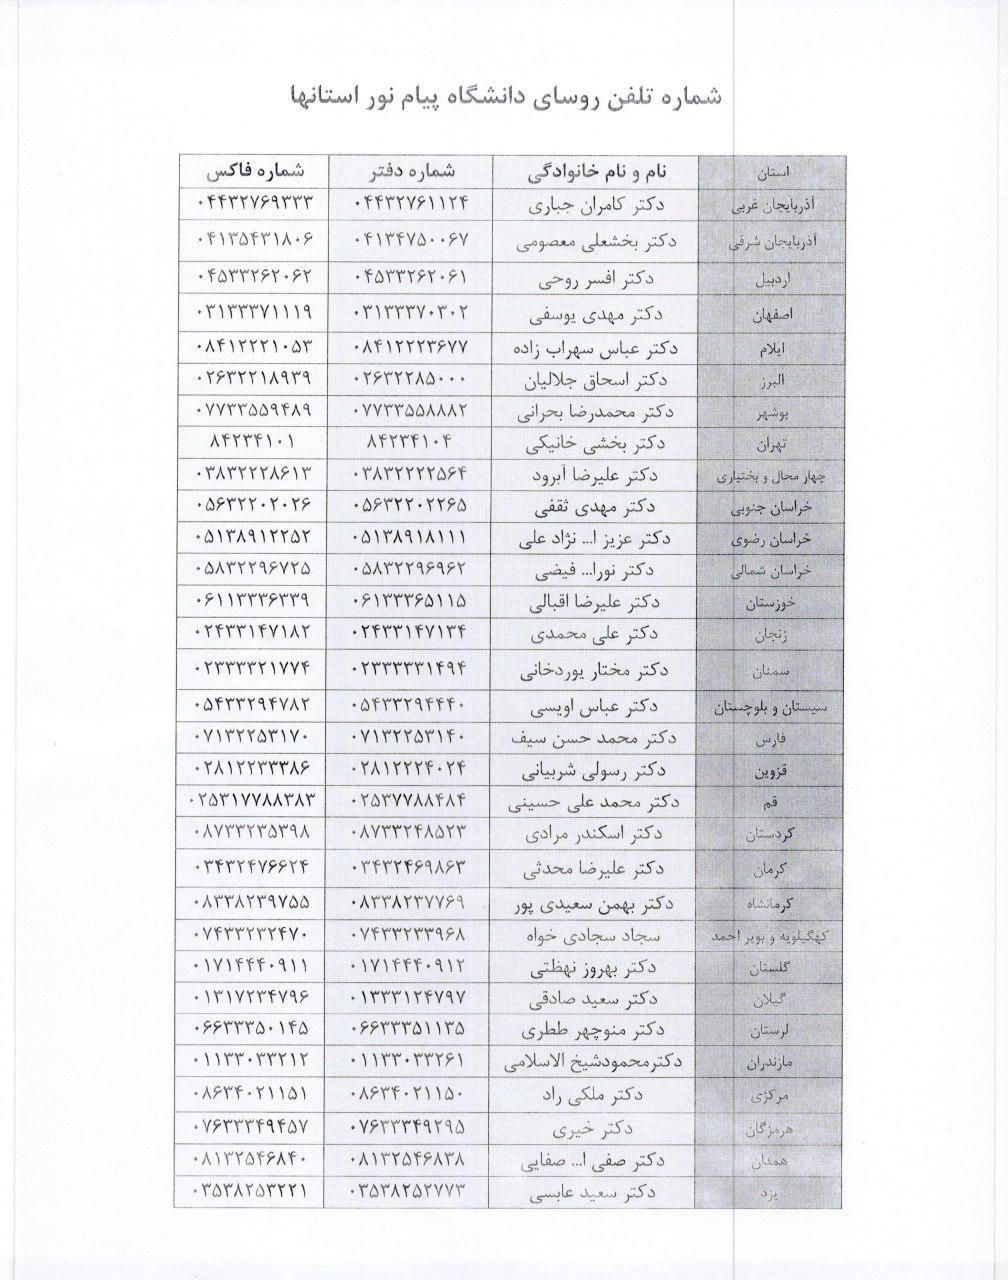 شماره تلفن روسای دانشگاه پیام نور استانها
استان نام و نام خانوادگی شماره دفتر شماره فاکس
آذربایجان غربی دکتر کامران جباری ۰۴۴۳۲۷۶۱۱۲۴ ۰۴۴۳۲۷۶۹۳۳۳
آذربایجان شرقی دکتر بخشعلی معصومی ۰۴۱۳۴۷۵۰۰۶۷ ۰۴۱۳۵۴۳۱۸۰۶
اردبیل دکتر افسر روحی ۰۴۵۳۳۲۶۲۰۶۱ ۰۴۵۳۳۲۶۲۰۶۲
اصفهان دکتر مهدی یوسفی ۰۳۱۳۳۳۷۰۳۰۲ ۰۳۱۳۳۳۷۱۱۱۹
ایلام دکتر عباس سهراب زاده ۰۸۴۱۲۲۲۳۶۷۷ ۰۸۴۱۲۲۲۱۰۵۳
البرز دکتر اسحاق جلالیان ۰۲۶۳۲۲۸۵۰۰۰ ۰۲۶۳۲۲۱۸۹۳۹
بوشهر دکتر محمدرضا بحرانی ۰۷۷۳۳۵۵۸۸۸۲ ۰۷۷۳۳۵۵۹۴۸۹
تهران دکتر بخشی خانیکی ۸۴۲۳۴۱۰۴ ۸۴۲۳۴۱۰۱
چهار محال و بختیاری دکتر علیرضا آبرود ۰۳۸۳۲۲۲۲۵۶۴ ۰۳۸۳۲۲۲۸۶۱۳
خراسان جنوبی دکتر مهدی ثقفی ۰۵۶۳۲۲۰۲۲۶۵ ۰۵۶۳۲۲۰۲۰۲۶
خراسان رضوی دکتر عزیز ا... نژاد علی ۰۵۱۳۸۹۱۸۱۱۱ ۰۵۱۳۸۹۱۲۲۵۲
خراسان شمالی دکتر نورا... فیضی ۰۵۸۳۲۲۹۶۹۶۲ ۰۵۸۳۲۲۹۶۷۲۵
خوزستان دکتر علیرضا اقبالی ۰۶۱۳۳۳۶۵۱۱۵ ۰۶۱۱۳۳۳۶۳۳۹
زنجان دکتر علی محمدی ۰۲۴۳۳۱۴۷۱۳۴ ۰۲۴۳۳۱۴۷۱۸۲
سمنان دکتر مختار یوردخانی ۰۲۳۳۳۳۳۱۴۹۴ ۰۲۳۳۳۳۲۱۷۷۴
سیستان و بلوچستان دکتر عباس اویسی ۰۵۴۳۳۲۹۴۴۴۰ ۰۵۴۳۳۲۹۴۷۸۲
فارس دکتر محمد حسن سیف ۰۷۱۳۲۲۵۳۱۴۰ ۰۷۱۳۲۲۵۳۱۷۰
قزوین دکتر رسولی شربیانی ۰۲۸۱۲۲۲۴۰۲۴ ۰۲۸۱۲۲۳۳۳۸۶
قم دکتر محمد علی حسینی ۰۲۵۳۷۷۸۸۴۸۴ ۰۲۵۳۱۷۷۸۸۳۸۳
کردستان دکتر اسکندر مرادی ۰۸۷۳۳۲۴۸۵۲۳ ۰۸۷۳۳۲۳۵۳۹۸
کرمان دکتر علیرضا محدثی ۰۳۴۳۲۴۶۹۸۶۳ ۰۳۴۳۲۴۷۶۶۲۴
کرمانشاه دکتر بهمن سعیدی پور ۰۸۳۳۸۲۳۷۷۶۹ ۰۸۳۳۸۲۳۹۷۵۵
کهگیلویه و بویر احمد سجاد سجادی خواه ۰۷۴۳۳۲۳۳۹۶۸ ۰۷۴۳۳۲۳۲۴۷۰
گلستان دکتر بهروز نهظتی ۰۱۷۱۴۴۴۰۹۱۲ ۰۱۷۱۴۴۴۰۹۱۱
گیلان دکتر سعید صادقی ۰۱۳۳۳۱۲۴۷۹۷ ۰۱۳۱۷۲۳۴۷۹۶
لرستان دکتر منوچهر ططری ۰۶۶۳۳۳۵۱۱۳۵ ۰۶۶۳۳۳۵۰۱۴۵
مازندران دکترمحمودشیخ الاسلامی ۰۱۱۳۳۰۳۳۲۶۱ ۰۱۱۳۳۰۳۳۲۱۲
مرکزی دکتر ملکی راد ۰۸۶۳۴۰۲۱۱۵۰ ۰۸۶۳۴۰۲۱۱۵۱
هرمزگان دکتر خیری ۰۷۶۳۳۳۴۹۲۹۵ ۰۷۶۳۳۳۴۹۴۵۷
همدان دکتر صفی ا... صفایی ۰۸۱۳۲۵۴۶۸۳۸ ۰۸۱۳۲۵۴۶۸۴۰
یزد دکتر سعید عابسی ۰۳۵۳۸۲۵۲۷۷۳ ۰۳۵۳۸۲۵۳۲۲۱